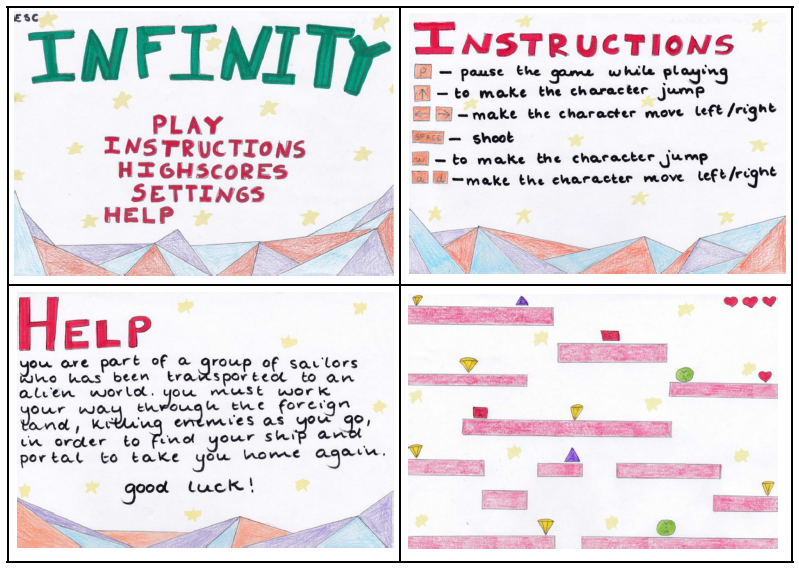 ESC
INFINITY
PLAY
INSTRUCTIONS
HIGHSCORES
SETTINGS
HELP
INSTRUCTIONS
P — pause the game while playing
↑ — to make the character jump
← → — make the character move left/right
SPACE — shoot
w — to make the character jump
a d — make the character move left/right
HELP
you are part of a group of sailors
who has been transported to an
alien world. you must work
your way through the foreign
land, killing enemies as you go,
in order to find your ship and
portal to take you home again.
good luck!